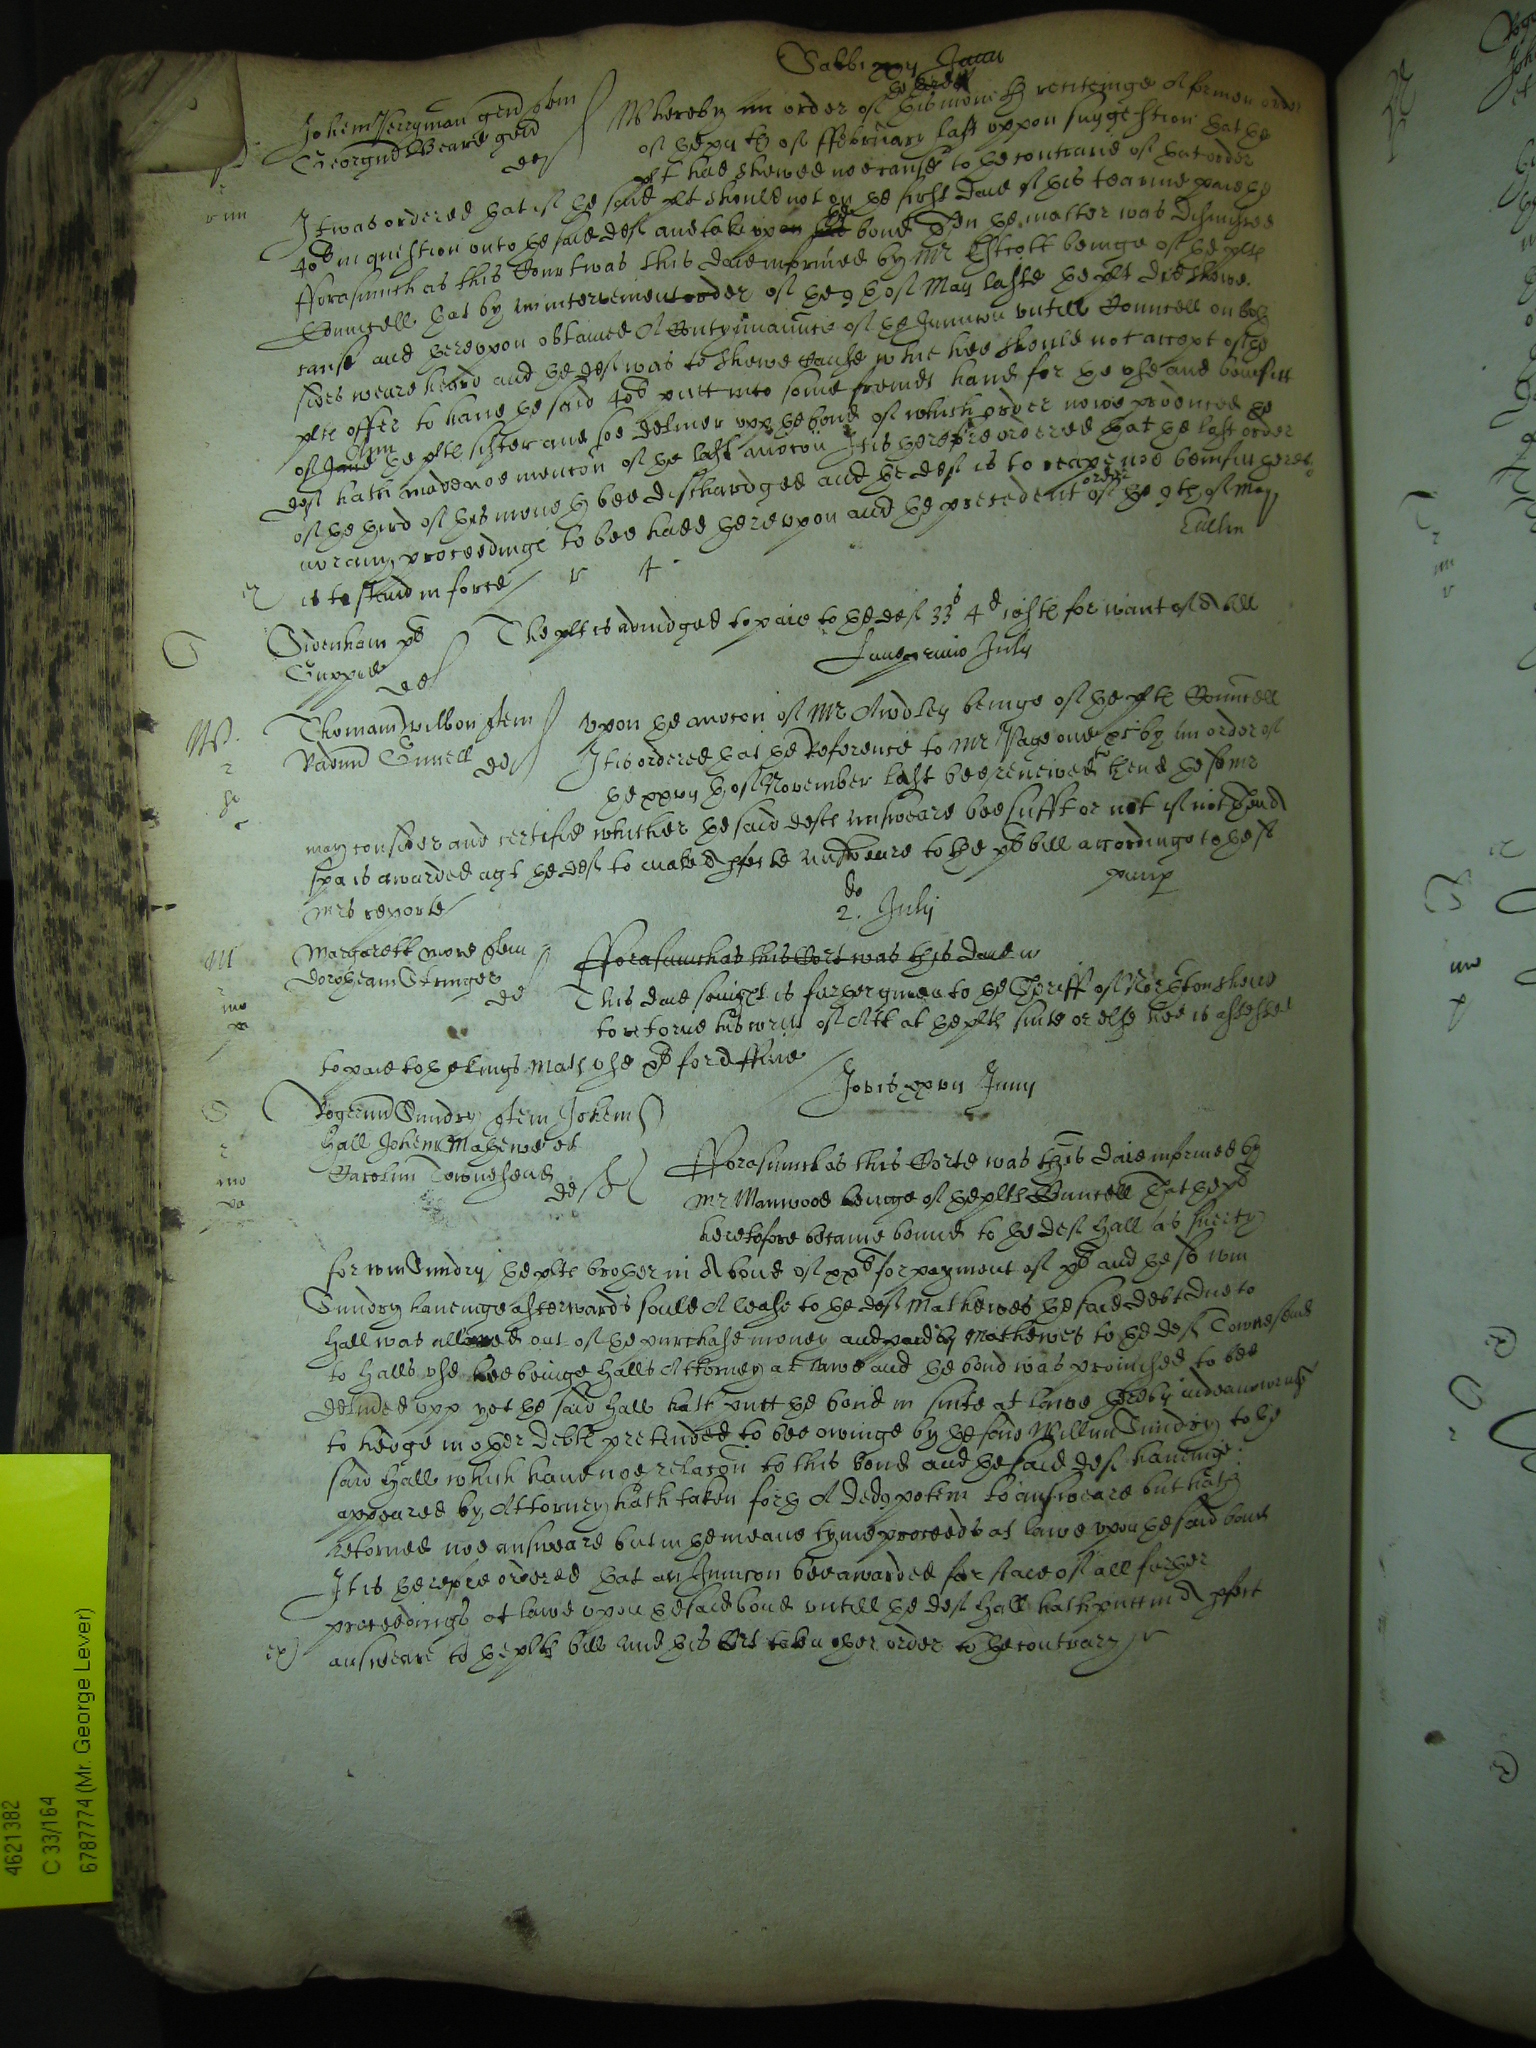 Sabbi Junii
Johem Merryman gen quem
Georgiu Weare gen
def
Whereby an order of the third of this moneth reciteinge A former order
of the xvth of ffebruary last uppon suggestion that the
plt had shewed noe cause to the contrarie of that order
It was ordered that if the said plt should not on the first daie of this tearme paie the
40s in question unto the said deft and take upp the bond Then the matter was dismissed
fforasmuch as this Court was this daie informed by Mr Estcott beinge of the plts
Councell that by an intervenient order of the 9th of May laste the plt did shewe
cause and thereuppon obtained A Contynuance of the Iniunccon untill Councell on both
sides weare heard and the deft was to shewe cause whie hee should not accept of the
plts offer to have the said 40s putt into some freinds hand for the use and benefitt
of the plts sister and soe deliver upp the bond of which order nowe produced the
deft hath made noe mencon of the last mocon It is therefore ordered that the last order
of the third of this moneth bee dischardged and the deft is to reape noe benefitt thereby
nor any proceedinge to bee hadd thereuppon and the precedent order of the 9th of May
is to stand in force
Tullen
T
Sidenham plt
Tuppe
def
The plt is adiudged to paie to the deft 33s 4d costs for want of A bill
Lune primo July
W
Thomam Wilson quem
Radum Gunell def
Upon the mocon of Mr Awdley beinge of the plts Councell
It is ordered that the Reference to Mr Page one &c by an order of
the xxvijth of November last bee renewed to thend the same Mr
may consider and certifie whether the said defts answeare bee sufft or not if not then A
spa is awarded agt the deft to make A pfecte answeare to the plts bill accordinge to the sd
Mrs reporte
2do July
M
Margarett more quem
Dorotheam Stringer
def
fforasmuch as this Cort was this daie in
This daie sevight is further given to the Sheriff of Northton shire
to retorne his writt of Att at the plts suite or else hee is assessed
to paie to the kings Mats use for A ffine
Jovis xxvij Junij
Rogerum Sundry quem Johem
Hall Johem Mathewe et
Townesend
def
fforasmuch as this Corte was this daie informed by
Mr Manwood beinge of the plts Councell That the plt
heretofore became bound to the deft Hall as suerty
for Wm Sundry the plts brother in A bond of xxli for payment of xli and the sd Wm
Sundry haveinge afterwards sould A lease to the deft Mathewes the said debt due to
Hall was allowed out of the purchase money and paid by Mathewes to the deft Townesend
to Halls use hee beinge Halls Attorney at lawe and the bond was promised to bee
delivered upp yet the said Hall hath putt the bond in suite at lawe thereby indeavouringe
to hedge in other debts pretended to bee owinge by the said Willm Sundry to the
said Hall which have noe relacon to this bond and the said deft haveinge
appeared by Attorney hath taken forth A Dedi potem to answeare but hath
retorned noe answeare but in the meane tyme proceeds at lawe upon the said bond
It is therefore ordered that an Iniuncon bee awarded for staie of all further
proceedings at lawe upon the said bond untill the deft Hall hath putt in A pfect
answeare to the plts bill and this Cort taken other order to the contrary
4621382
C 33/164
6787774 (Mr. George Lever)